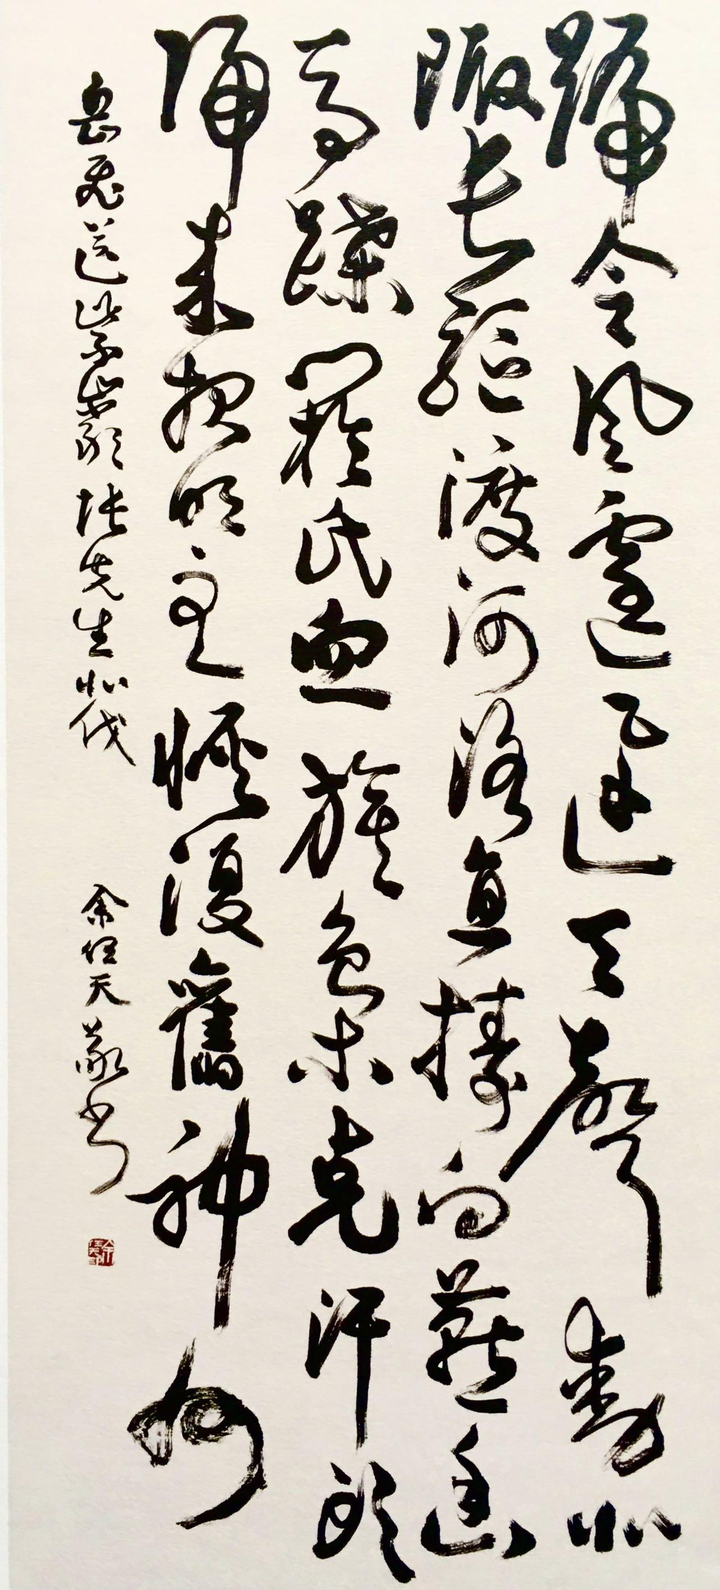 號令風霆迅天聲動北
陬長驅渡河洛直擣向燕幽
馬蹀閼氏血旗梟克汗頭
歸來報明主恢復舊神州
岳飛送紫巖張先生北伐
余任天敬书